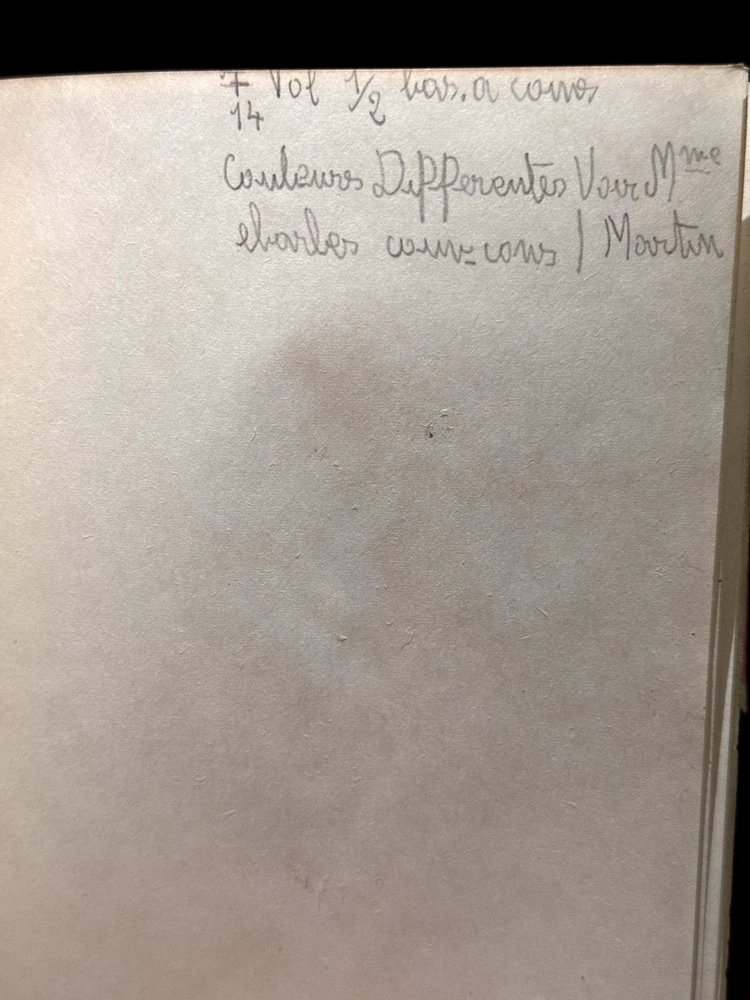 7 Vol 1/2 bas. a coins
14
Couleurs Differentes Voir Mme
ebarbes couv=cons | Martin